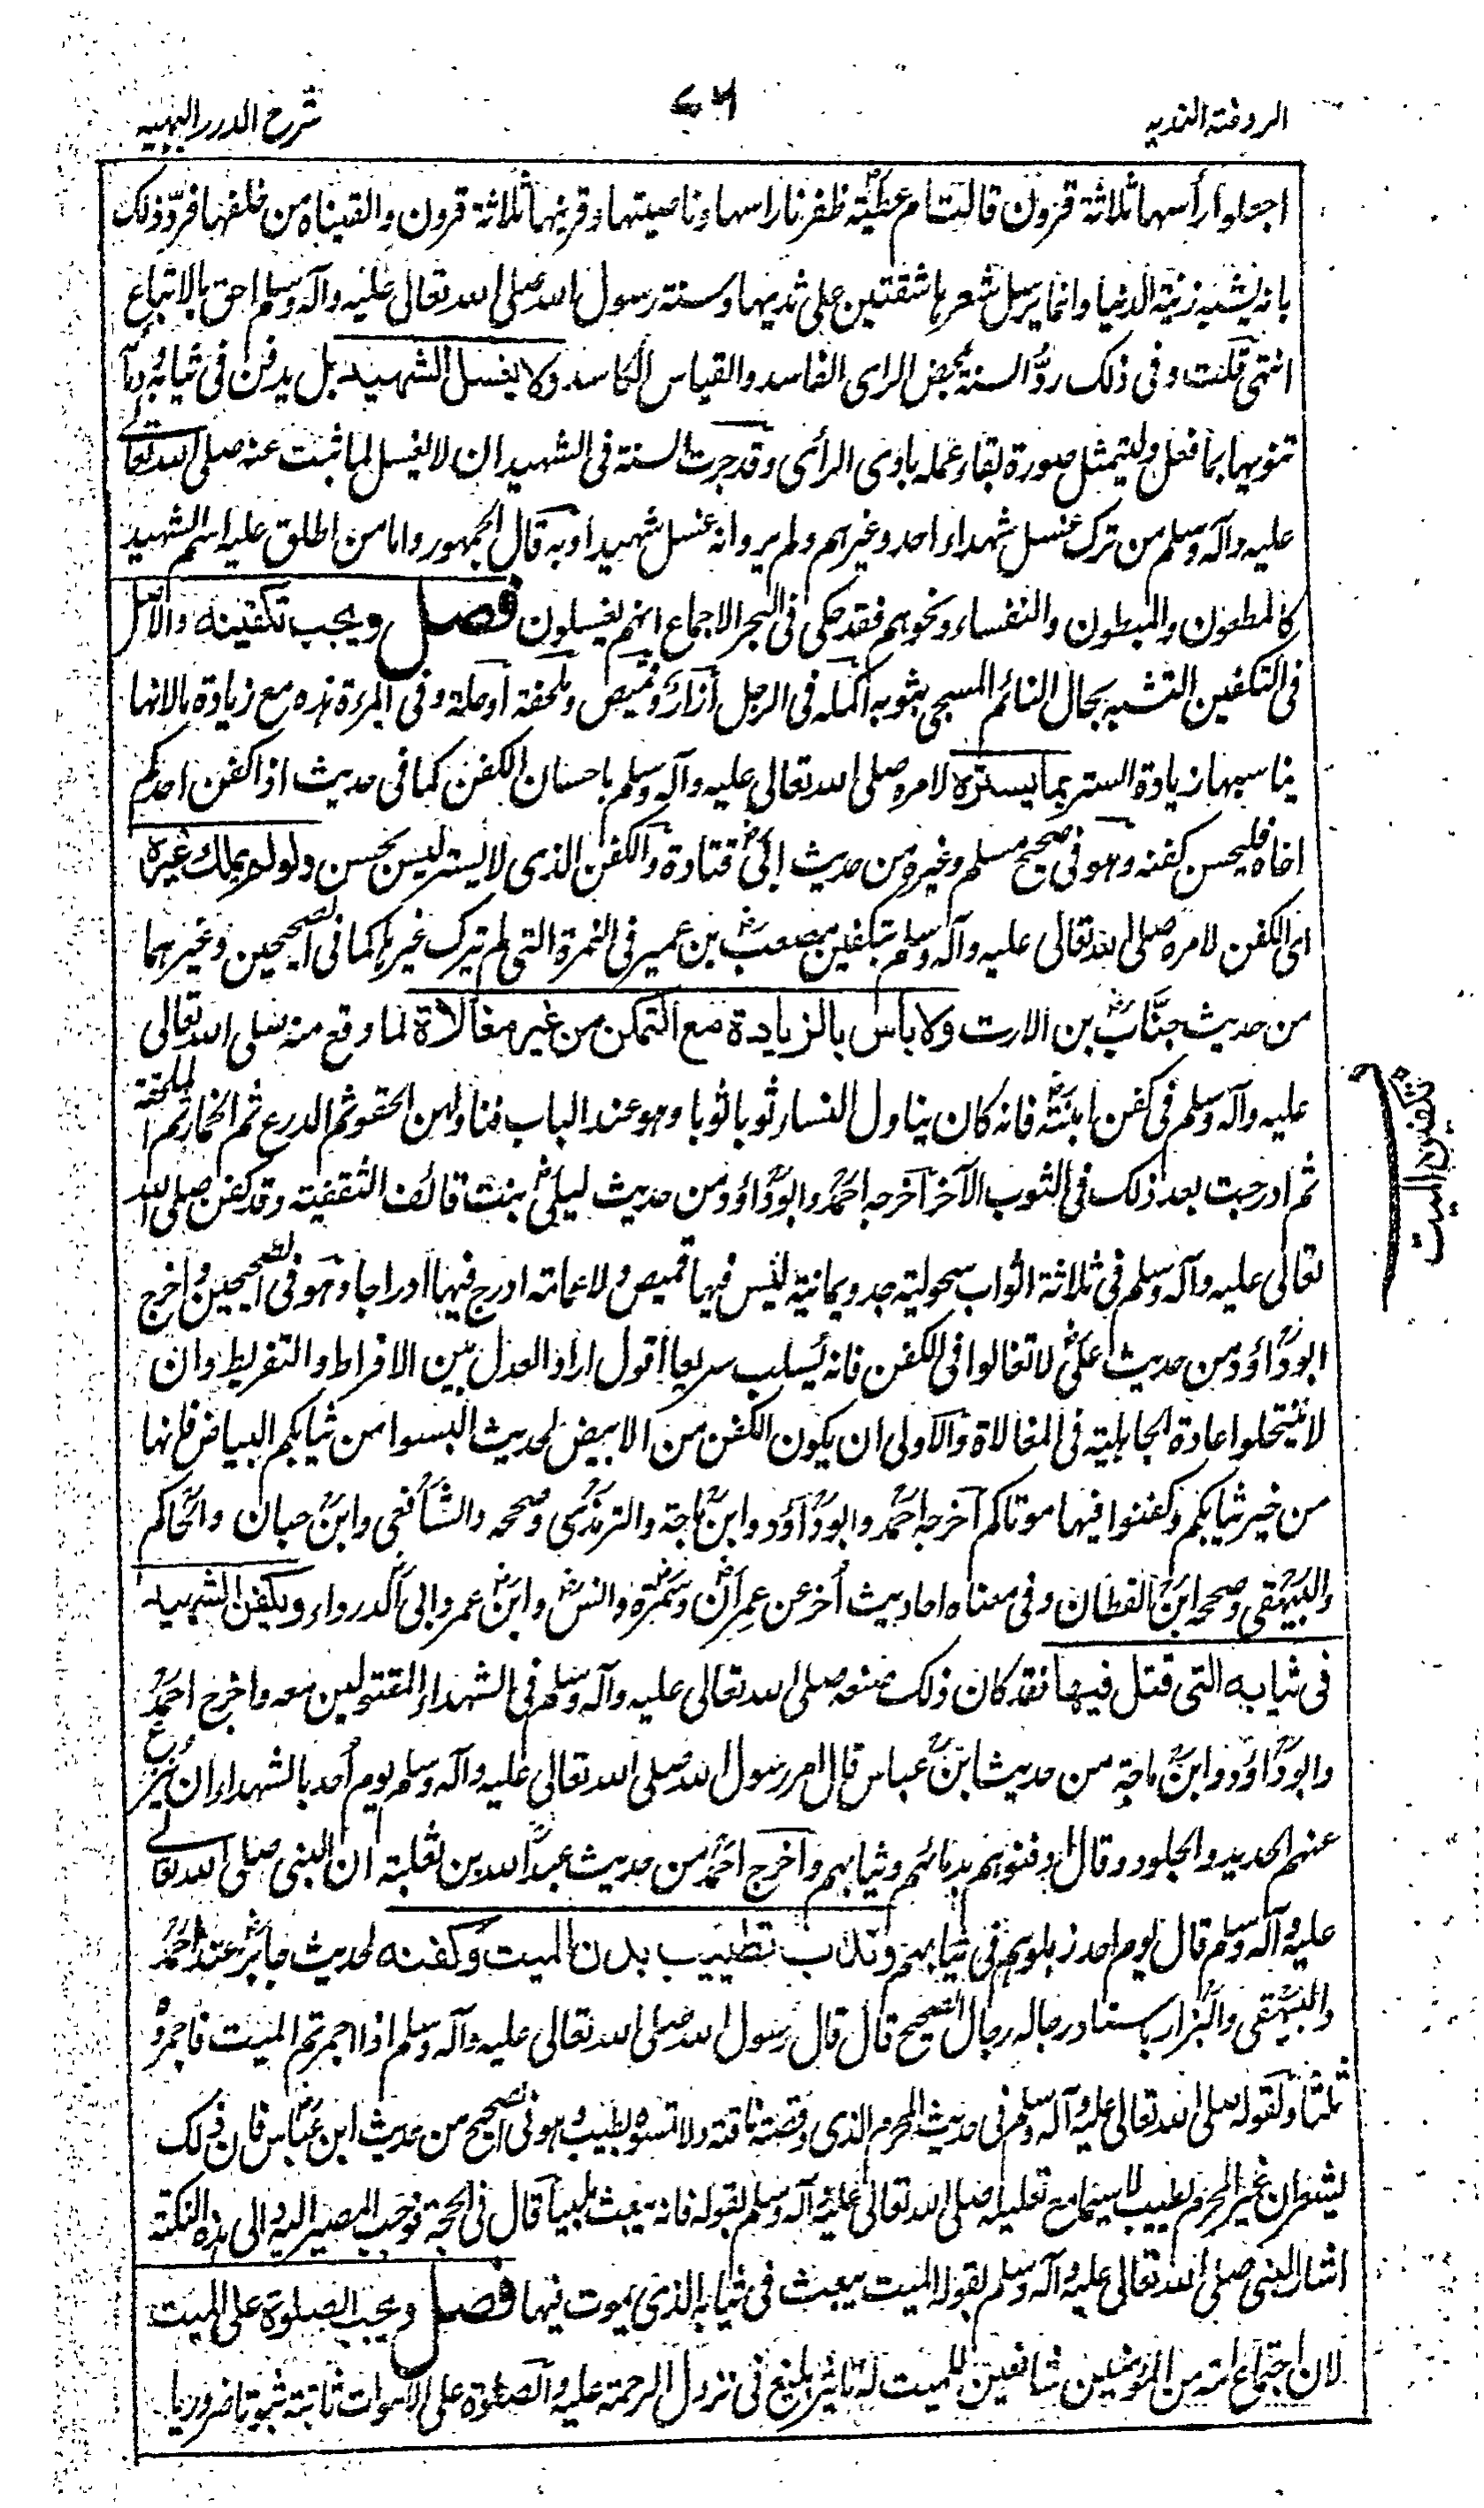 الروضة الندية
٧٦
شرح الدرر البهية
اجعلوا رأسها ثلاثة قرون قالت ام عطية ظفرنا راسها وناصيتها وقرنيها ثلاثة قرون والقيناه من خلفها فردّ ذلك
بانه يشبه زينة الدنيا وانما يرسل شعرها شقتين على ثدييها وسنة رسول الله صلى الله تعالى عليه وآله وسلم احق بالاتباع
انتهى قلت وفى ذلك ردُّ السنة بمحض الراى الفاسد والقياس الكاسد ولا يغسل الشهيد بل يدفن فى ثيابه ودمائه
تنويها بما فعل وليتمثل صورة بقاء عمله بادى الرأى وقد جرت السنة فى الشهيد ان لا يغسل لما ثبت عنه صلى الله تعالى
عليه وآله وسلم من ترك غسل شهداء احد وغيرهم ولم يرو انه غسل شهيدا وبه قال الجمهور واما من اطلق عليه اسم الشهيد
كالمطعون والمبطون والنفساء ونحوهم فقد حكى فى البحر الاجماع انهم يغسلون فصل ويجب تكفينه والاصل
فى التكفين التشبه بحال النائم المسجى بثوبه اكمله فى الرجل ازار وقميص وملحفة او حلة وفى المرءة هذه مع زيادة ما لانها
يناسبها زيادة الستر بما يستره لامره صلى الله تعالى عليه وآله وسلم باحسان الكفن كما فى حديث اذا كفن احدكم
اخاه فليحسن كفنه وهو فى صحيح مسلم وغيره من حديث ابى قتادة والكفن الذى لا يستر ليس بحسن ولو لم يملك غيره
اى الكفن لامره صلى الله تعالى عليه وآله وسلم بتكفين مصعب بن عمير فى النمرة التى لم يترك غيرها كما فى الصحيحين وغيرهما
من حديث خبّاب بن الارت ولا بأس بالزيادة مع التمكن من غير مغالاة لما وقع منه صلى الله تعالى
عليه وآله وسلم فى كفن ابنته فانه كان يناول النساء ثوبا ثوبا وهو عند الباب فناولهن الحقو ثم الدرع ثم الخمار ثم الملحفة
ثم ادرجت بعد ذلك فى الثوب الآخر اخرجه احمد وابو داؤد من حديث ليلى بنت قائف الثقفية وقد كفن صلى الله
تعالى عليه وآله وسلم فى ثلاثة اثواب سحولية جدد يمانية ليس فيها قميص ولا عمامة ادرج فيها ادراجا وهو فى الصحيحين واخرج
ابو داؤد من حديث على لا تغالوا فى الكفن فانه يسلب سريعا اقول اراد العدل بين الافراط والتفريط وان
لا ينتحلوا عادة الجاهلية فى المغالاة والاولى ان يكون الكفن من الابيض لحديث البسوا من ثيابكم البياض فانها
من خير ثيابكم وكفنوا فيها موتاكم اخرجه احمد وابو داؤد وابن ماجة والترمذى وصححه والشافعى وابن حبان والحاكم
والبيهقى وصححه ابن القطان وفى معناه احاديث اُخر عن عمران وسمرة وانس وابن عمر وابى الدرداء ويكفن الشهيد
فى ثيابه التى قتل فيها فقد كان ذلك صنعه صلى الله تعالى عليه وآله وسلم فى الشهداء المقتولين معه واخرج احمد
وابو داؤد وابن ماجة من حديث ابن عباس قال امر رسول الله صلى الله تعالى عليه وآله وسلم يوم اُحد بالشهداء ان ينزع
عنهم الحديد والجلود وقال ادفنوهم بدمائهم وثيابهم واخرج احمد من حديث عبد الله بن ثعلبة ان النبى صلى الله تعالى
عليه وآله وسلم قال يوم احد زملوهم فى ثيابهم وندب تطييب بدن الميت وكفنه لحديث جابر عند احمد
والبيهقى والبزار باسناد رجاله رجال الصحيح قال قال رسول الله صلى الله تعالى عليه وآله وسلم اذا اجمرتم الميت فاجمروه
ثلثا ولقوله صلى الله تعالى عليه وآله وسلم فى حديث المحرم الذى وقصته ناقته ولا تمسوه بطيب وهو فى الصحيح من حديث ابن عباس فان ذلك
يشعر ان غير المحرم يطيب لا سيما مع تعليله صلى الله تعالى عليه وآله وسلم بقوله فانه يبعث ملبيا قال فى الحجة فوجب المصير اليه والى هذه النكتة
اشار النبى صلى الله تعالى عليه وآله وسلم بقوله الميت يبعث فى ثيابه الذى يموت فيها فصل ويجب الصلوة على الميت
لان اجتماع امة من المؤمنين شافعين للميت له تاثير بليغ فى نزول الرحمة عليه والصلوة على الاموات ثابتة ثبوتا ضروريا
تكفين الميت